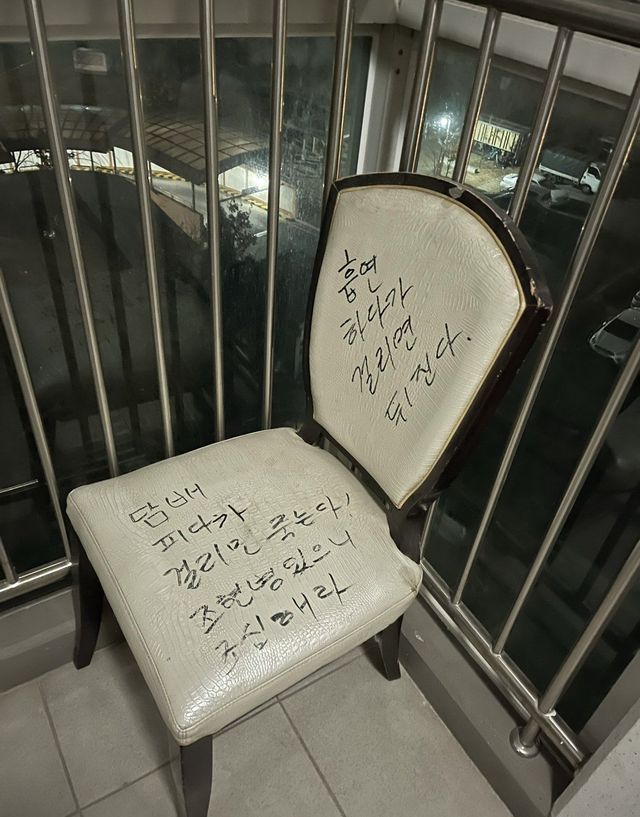 흡연
하다가
걸리면
뒤진다.
담배
피다가
걸리면 죽는다!
조현병 있으니
조심해라